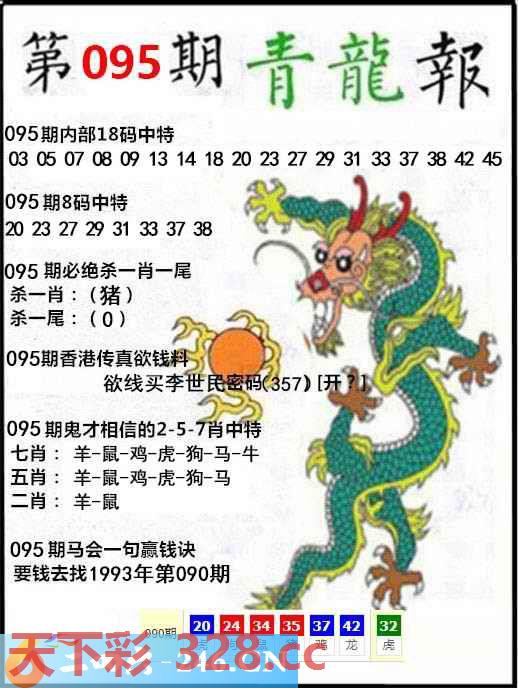 第095期青龍報
095期内部18码中特
03 05 07 08 09 13 14 18 20 23 27 29 31 33 37 38 42 45
095期8码中特
20 23 27 29 31 33 37 38
095期必绝杀一肖一尾
杀一肖:(猪)
杀一尾:(0)
095期香港传真欲钱料
欲线买李世民密码(357)[开?]
095期鬼才相信的2-5-7肖中特
七肖:羊-鼠-鸡-虎-狗-马-牛
五肖:羊-鼠-鸡-虎-狗-马
二肖:羊-鼠
095期马会一句赢钱诀
要钱去找1993年第090期
090期 20 24 34 35 37 42 32
鸡 龙 虎
天下彩-328.cc